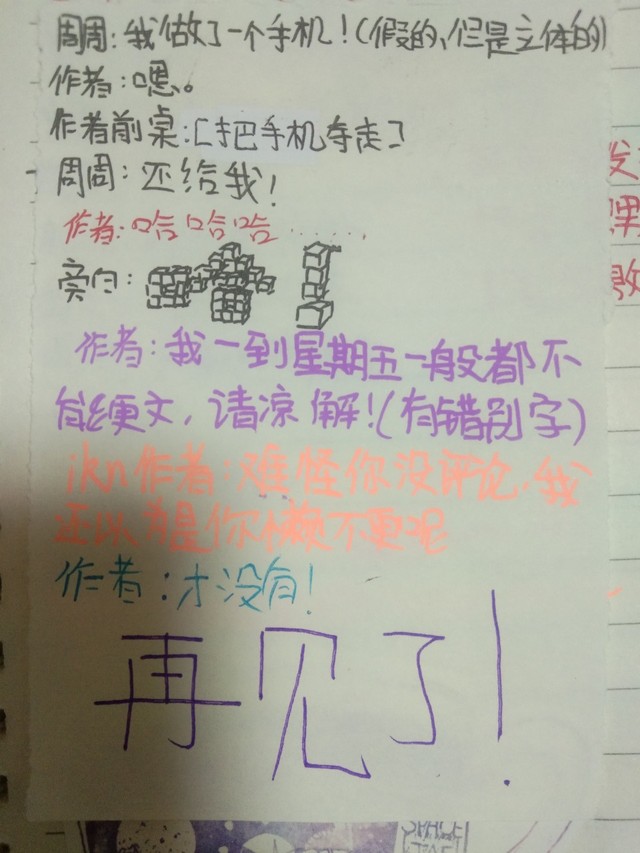 周周：我做了一个手机！(假的、但是立体的)
作者：嗯。
作者前桌：[把手机夺走]
周周：还给我！
作者：哈哈哈……
旁白：
作者：我一到星期五一般都不
能绠文，请凉解！(有错别字)
ikn作者：难怪你没评论，我
还以为是你懒不更呢
作者：才没有！
再见了！
发
SPACE